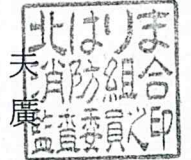 北はりま
消防組合
監査委員之印
天
廣